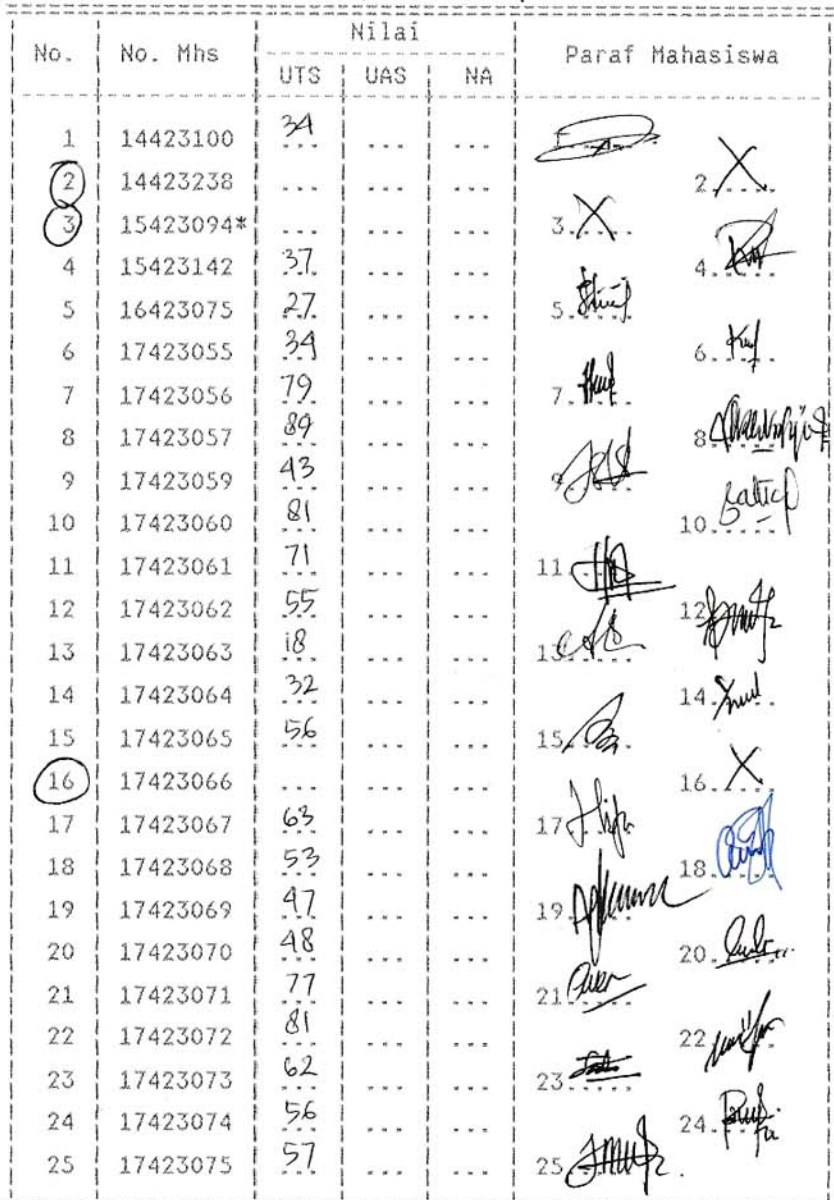 Nilai
No. No. Mhs Paraf Mahasiswa
UTS UAS NA
1 14423100 34 ... ...
2 14423238 ... ... ... 2. X
3 15423094* ... ... ... 3. X
4 15423142 37 ... ... 4.
5 16423075 27 ... ... 5.
6 17423055 34 ... ... 6.
7 17423056 79 ... ... 7.
8 17423057 89 ... ... 8
9 17423059 43 ... ... 9.
10 17423060 81 ... ... 10.
11 17423061 71 ... ... 11
12 17423062 55 ... ... 12
13 17423063 18 ... ... 13.
14 17423064 32 ... ... 14.
15 17423065 56 ... ... 15.
16 17423066 ... ... ... 16. X
17 17423067 63 ... ... 17
18 17423068 53 ... ... 18.
19 17423069 47 ... ... 19.
20 17423070 48 ... ... 20.
21 17423071 77 ... ... 21
22 17423072 81 ... ... 22
23 17423073 62 ... ... 23
24 17423074 56 ... ... 24.
25 17423075 57 ... ... 25